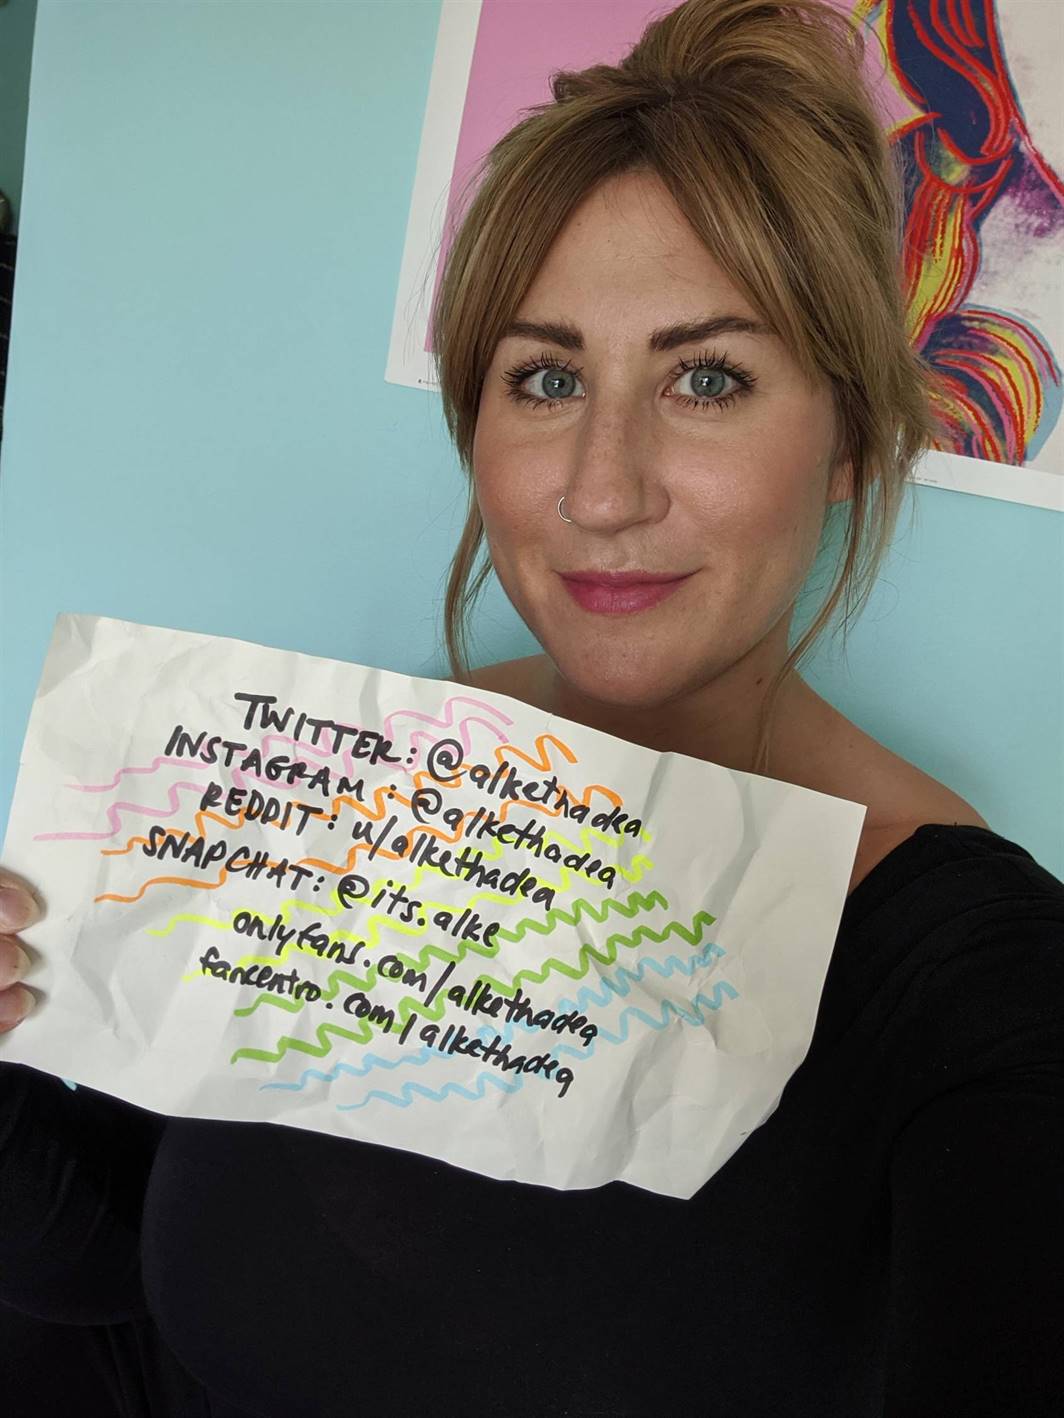 TWITTER: @alkethadea
INSTAGRAM: @alkethadea
REDDIT: u/alkethadea
SNAPCHAT: @its.alke
onlyfans.com/alkethadea
fancentro.com/alkethadea